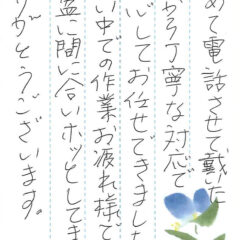 めて電話させて戴いた
から丁寧な対応で
心してお任せできました
い中での作業お疲れ様で
盆に間に合いホッとしてま
りがとうございます。